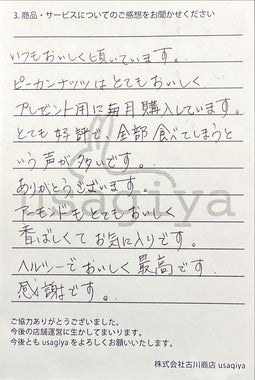 3. 商品・サービスについてのご感想をお聞かせください
いつもおいしく頂いています。
ピーカンナッツはとてもおいしく
プレゼント用に毎月購入しています。
とても好評で、全部食べてしまうと
いう声が多いです。
ありがとうございます。
アーモンドもとてもおいしく
香ばしくてお気に入りです。
ヘルシーでおいしく最高です.
感謝です。
usagiya
ご協力ありがとうございました。
今後の店舗運営に生かしてまいります。
今後とも usagiya をよろしくお願いいたします。
株式会社古川商店 usagiya